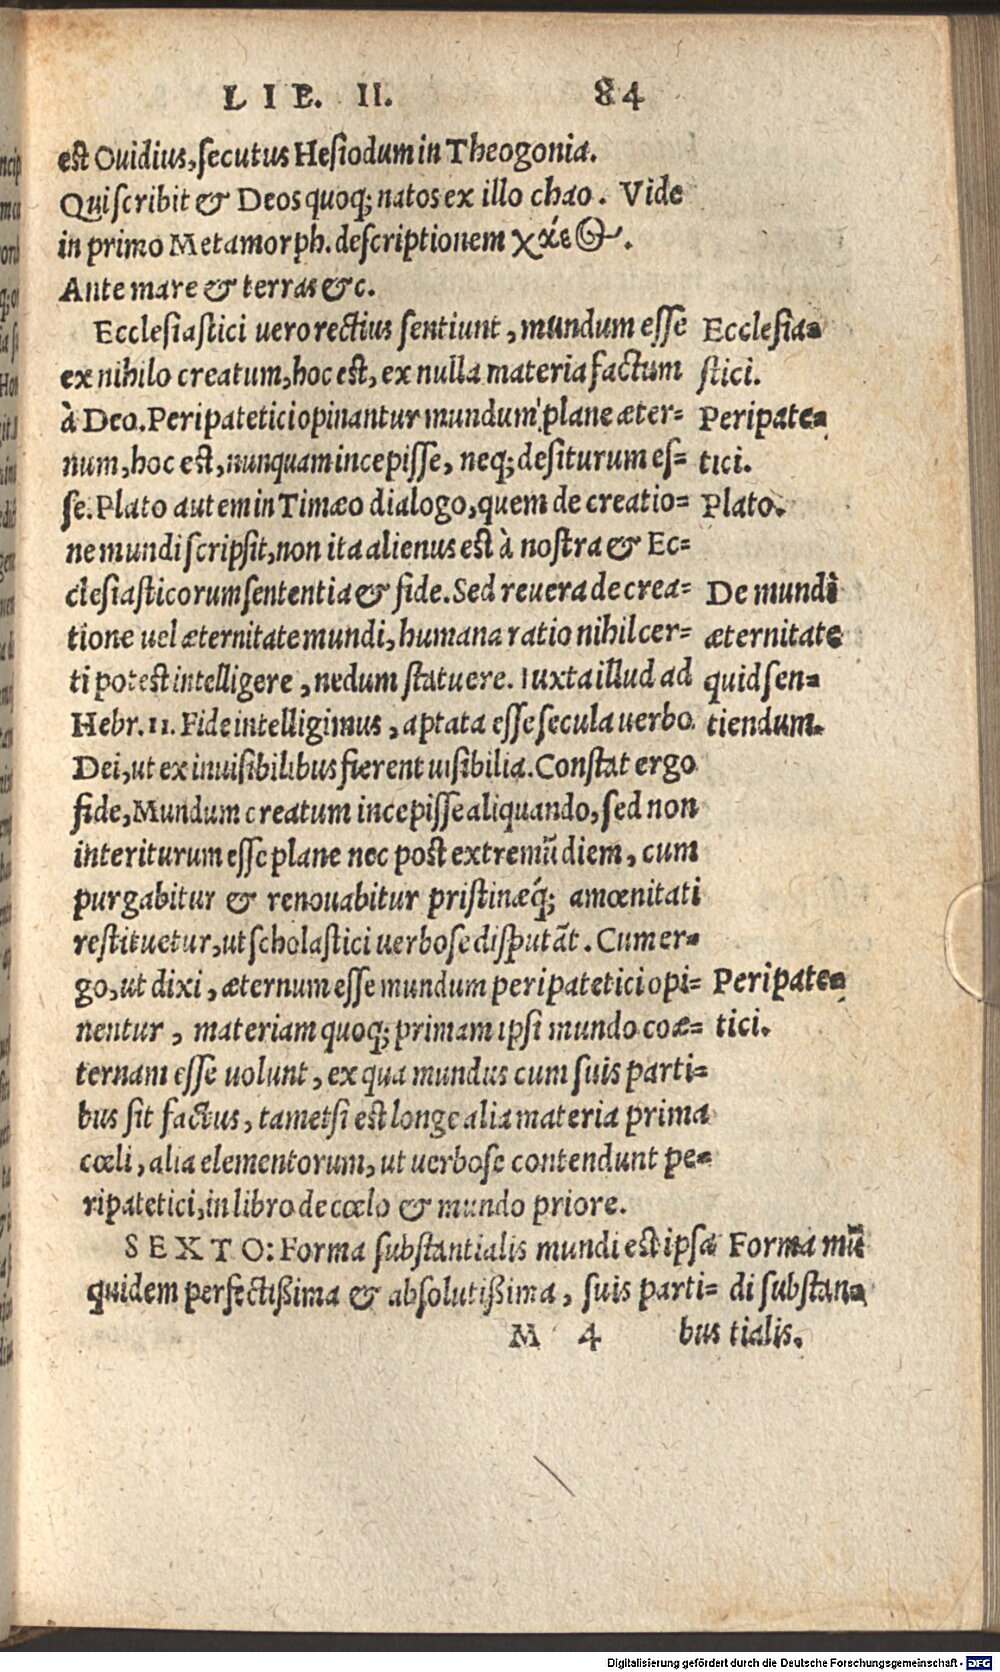 LIB. II. 84
est Ouidius, secutus Hesiodum in Theogonia.
Qui scribit & Deos quoq; natos ex illo chao. Vide
in primo Metamorph. descriptionem
Ante mare & terras &c.
Ecclesiastici uero rectius sentiunt, mundum esse
Ecclesia=
ex nihilo creatum, hoc est, ex nulla materia factum
stici.
à Deo. Peripatetici opinantur mundum plane æter=
Peripate=
num, hoc est, nunquam incepisse, neq; desiturum es=
tici.
se. Plato autem in Timæo dialogo, quem de creatio=
Plato.
ne mundi scripsit, non ita alienus est à nostra & Ec=
clesiasticorum sententia & fide. Sed reuera de crea=
De mundi
tione uel æternitate mundi, humana ratio nihil cer=
æternitate
ti potest intelligere, nedum statuere. Iuxta illud ad
quid sen=
Hebr. 11. Fide intelligimus, aptata esse secula uerbo
tiendum.
Dei, ut ex inuisibilibus fierent uisibilia. Constat ergo
fide, Mundum creatum incepisse aliquando, sed non
interiturum esse plane nec post extremū diem, cum
purgabitur & renouabitur pristinæq́; amœnitati
restituetur, ut scholastici uerbose disputāt. Cum er=
go, ut dixi, æternum esse mundum peripatetici opi=
Peripate=
nentur, materiam quoq; primam ipsi mundo coæ=
tici.
ternam esse uolunt, ex qua mundus cum suis parti=
bus sit factus, tametsi est longe alia materia prima
cœli, alia elementorum, ut uerbose contendunt pe=
ripatetici, in libro de cœlo & mundo priore.
SEXTO: Forma substantialis mundi est ipsa
Forma mū
quidem perfectißima & absolutißima, suis parti=
di substan=
M 4 bus
tialis.
Digitalisierung gefördert durch die Deutsche Forschungsgemeinschaft - DFG